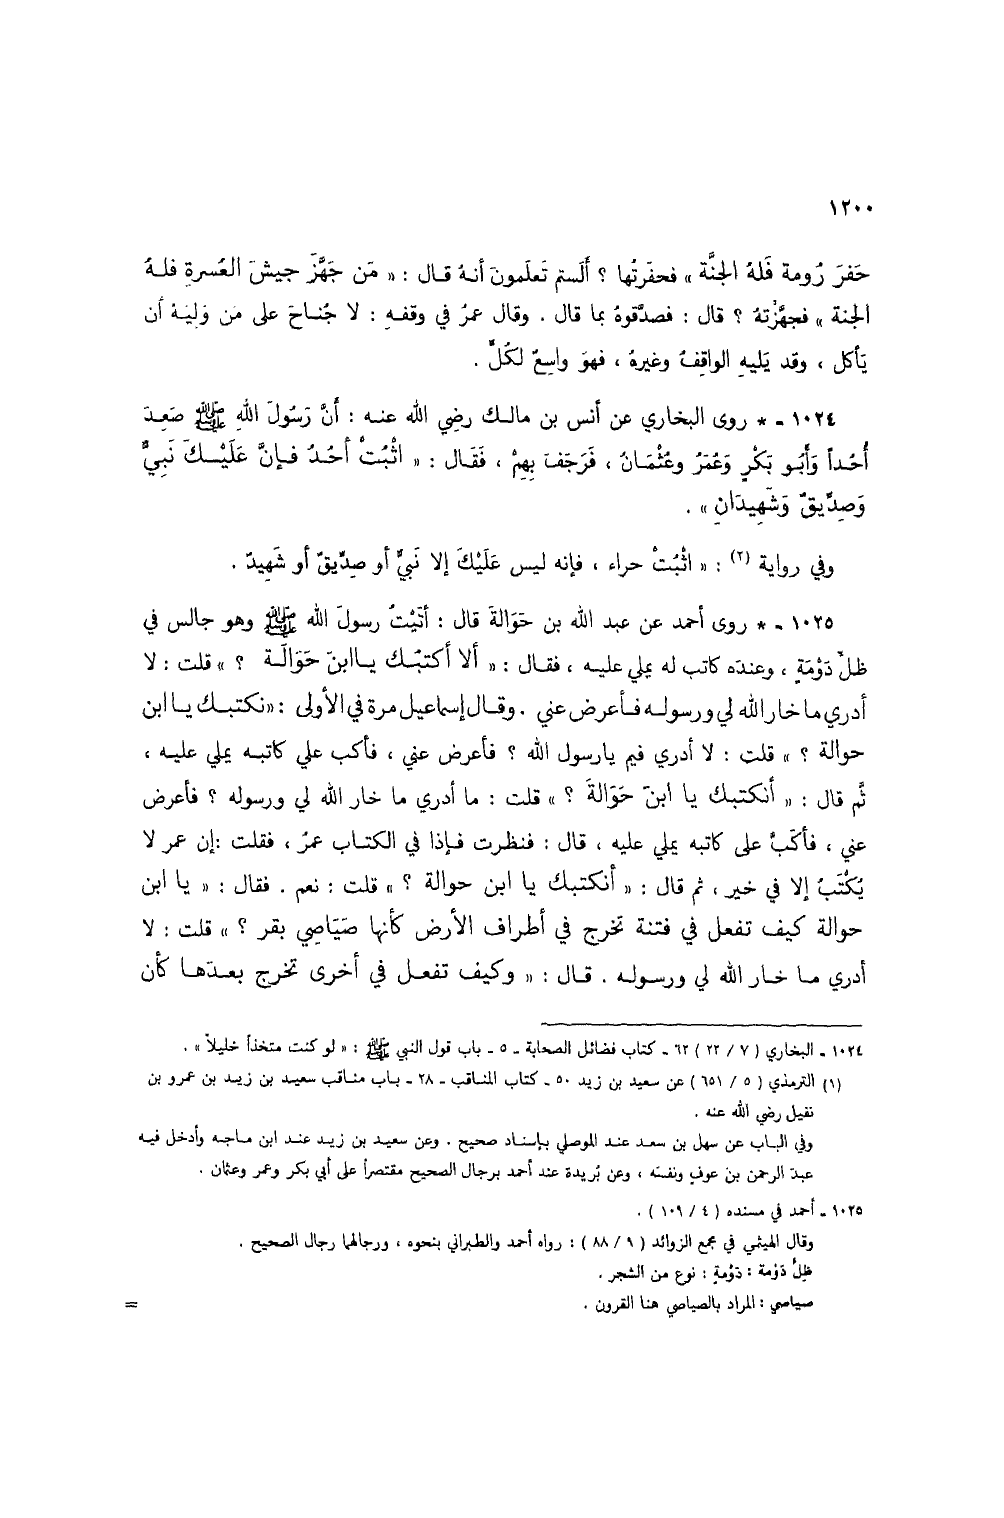 ١٢٠٠
حَفرَ رُومة فَلهُ الجنَّة » فحفرْتُها ؟ ألَستم تَعلَمونَ أنهُ قال : « مَن جَهَّزَ جيشَ العُسرةِ فلهُ
الجنة » فجهَّزْتهُ ؟ قال : فصدَّقوهُ بما قال . وقال عمرُ في وقفهِ : لا جُناحَ على مَن وَلِيَهُ أن
يَأكل ، وقد يَليهِ الواقِفُ وغيرهُ ، فهوَ واسِعٌ لكُلٍّ .
١٠٢٤ - * روى البخاري عن أنس بن مالك رضي الله عنه : أنَّ رَسُولَ اللهِ ﷺ صَعِدَ
أُحُداً وَأَبُو بَكْرٍ وَعُمَرُ وعُثْمَانُ ، فَرَجَفَ بِهِمْ ، فَقَال : « اثْبُتْ أُحُدُ فإنَّ عَلَيْكَ نَبِيٌّ
وَصِدِّيقٌ وَشَهِيدَانِ » .
وفي رواية (٢) : « اثْبُتْ حراء ، فإنه ليس عَلَيْكَ إلا نَبِيٌّ أو صِدِّيقٌ أو شَهِيدٌ .
١٠٢٥ - * روى أحمد عن عبد الله بن حَوَالةَ قال : أتَيْتُ رسولَ الله ﷺ وهو جالس في
ظلِّ دَوْمَةٍ ، وعندَه كاتب له يملي عليه ، فقال : « ألا أكتبُك ياابنَ حَوَالَة ؟ » قلت : لا
أدري ما خار الله لي ورسوله فأعرض عني . وقال إسماعيل مرة في الأولى : « نكتبك يا ابن
حوالة ؟ » قلت : لا أدري فيم يارسول الله ؟ فأعرض عني ، فأكب على كاتبه يملي عليه ،
ثُم قال : « أنكتبك يا ابنَ حَوَالةَ ؟ » قلت : ما أدري ما خار الله لي ورسوله ؟ فأعرض
عني ، فأكَبَّ على كاتبه يملي عليه ، قال : فنظرت فإذا في الكتاب عمرُ ، فقلت :إن عمر لا
يُكْتَبُ إلا في خير ، ثم قال : « أنكتبك يا ابن حوالة ؟ » قلت : نعم . فقال : « يا ابن
حوالة كيف تفعل في فتنة تخرج في أطراف الأرض كأنها صَيَاصِي بقر ؟ » قلت : لا
أدري ما خار الله لي ورسوله . قال : « وكيف تفعل في أخرى تخرج بعدَها كأن
١٠٢٤ - البخاري ( ٧ / ٢٢ ) ٦٢ - كتاب فضائل الصحابة - ٥ - باب قول النبي ﷺ : « لو كنت متخذاً خليلاً » .
(١) الترمذي ( ٥ / ٦٥١ ) عن سعيد بن زيد ٥٠ - كتاب المناقب - ٢٨ - باب مناقب سعيد بن زيد بن عمرو بن
نفيل رضي الله عنه .
وفي الباب عن سهل بن سعد عند الموصلي بإسناد صحيح . وعن سعيد بن زيد عند ابن ماجه وأدخل فيه
عبدَ الرحمن بن عوفٍ ونفسَه ، وعن بُريدة عند أحمد برجال الصحيح مقتصراً على أبي بكر وعمر وعثمان .
١٠٢٥ - أحمد في مسنده ( ٤ / ١٠٩ ) .
وقال الهيثمي في مجمع الزوائد ( ٩ / ٨٨ ) : رواه أحمد والطبراني بنحوه ، ورجالهما رجال الصحيح .
ظلُّ دَوْمة : دَوْمةٍ : نوع من الشجر .
صياصي : المراد بالصياصي هنا القرون .
=